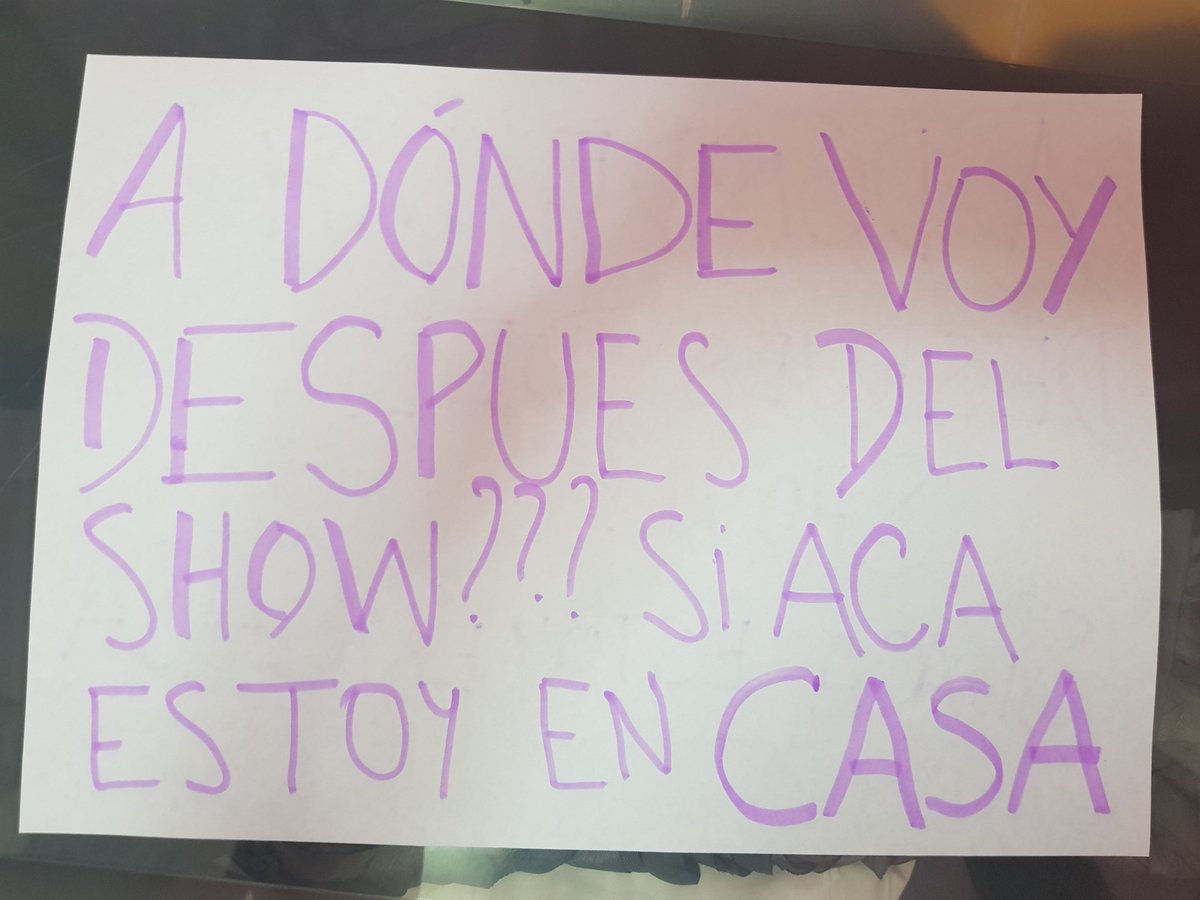 A DÓNDE VOY
DESPUES DEL
SHOW??? Si ACA
ESTOY EN CASA